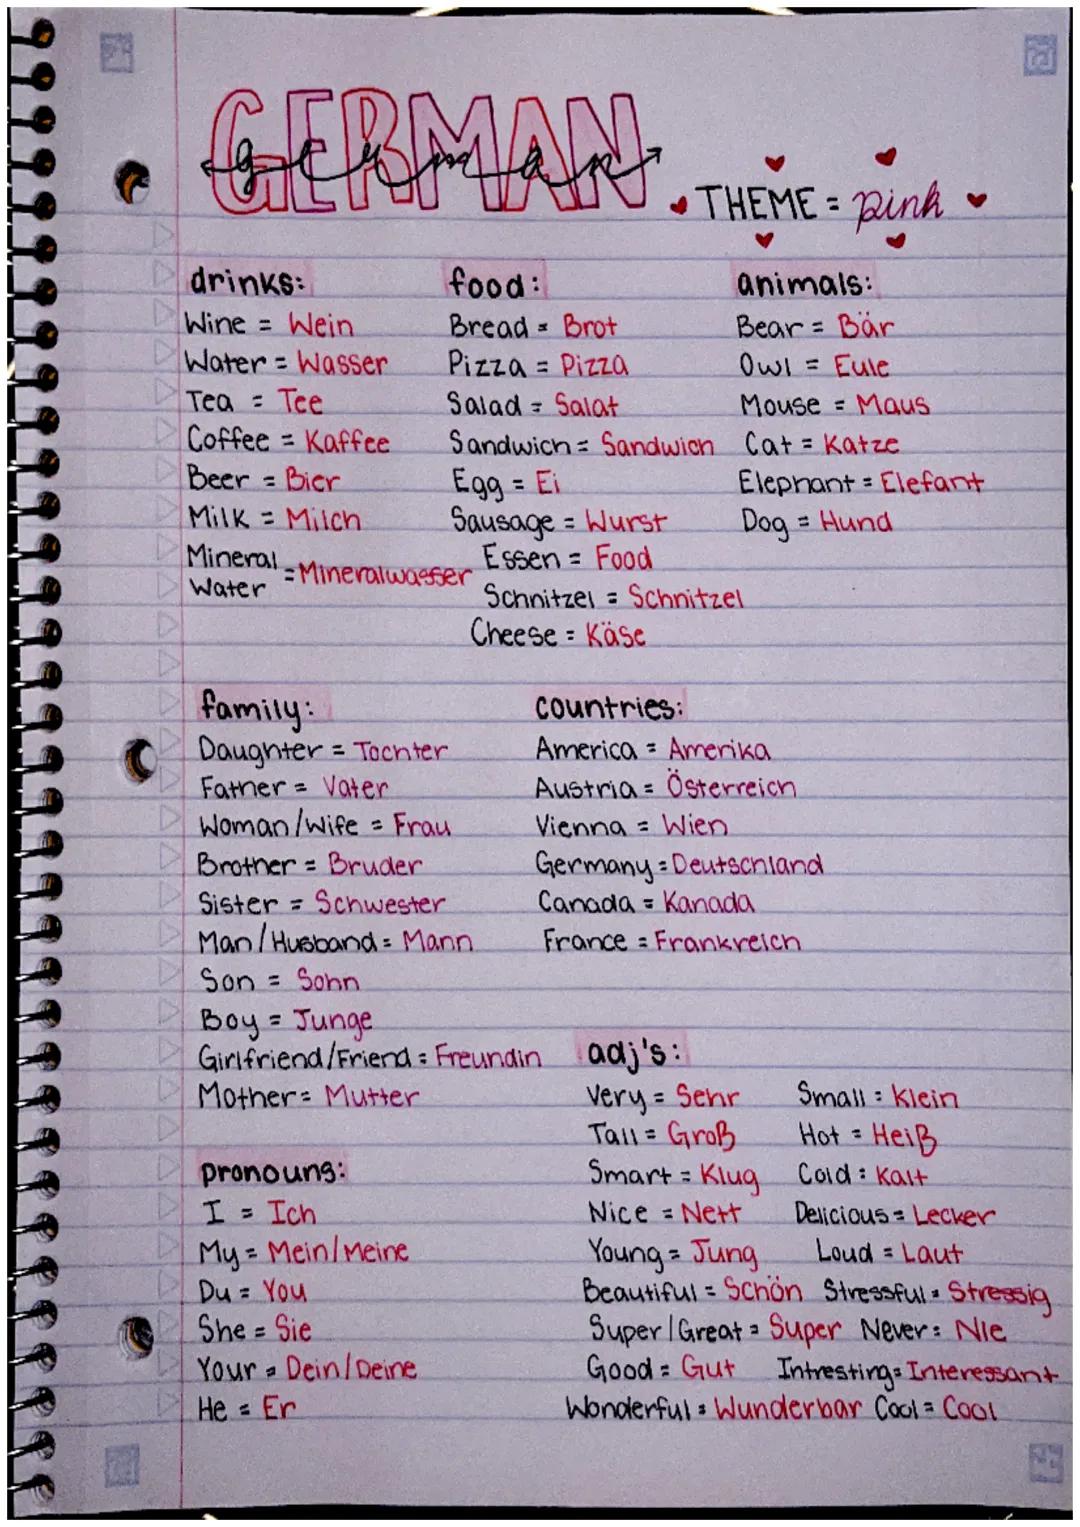 GERMAN
german
THEME = pink
drinks:
Wine = Wein
Water = Wasser
Tea = Tee
Coffee = Kaffee
Beer = Bier
Milk = Milch
Mineral Water = Mineralwasser
food:
Bread = Brot
Pizza = Pizza
Salad = Salat
Sandwich = Sandwich
Egg = Ei
Sausage = Wurst
Essen = Food
Schnitzel = Schnitzel
Cheese = Käse
animals:
Bear = Bär
Owl = Eule
Mouse = Maus
Cat = Katze
Elephant = Elefant
Dog = Hund
family:
Daughter = Tochter
Father = Vater
Woman/Wife = Frau
Brother = Bruder
Sister = Schwester
Man/Husband = Mann
Son = Sohn
Boy = Junge
Girlfriend/Friend = Freundin
Mother = Mutter
countries:
America = Amerika
Austria = Österreich
Vienna = Wien
Germany = Deutschland
Canada = Kanada
France = Frankreich
pronouns:
I = Ich
My = Mein/Meine
Du = You
She = Sie
Your = Dein/Deine
He = Er
adj's:
Very = Sehr
Tall = Groß
Smart = Klug
Nice = Nett
Young = Jung
Beautiful = Schön
Super/Great = Super
Good = Gut
Wonderful = Wunderbar
Small = Klein
Hot = Heiß
Cold = Kalt
Delicious = Lecker
Loud = Laut
Stressful = Stressig
Never = Nie
Intresting = Interessant
Cool = Cool